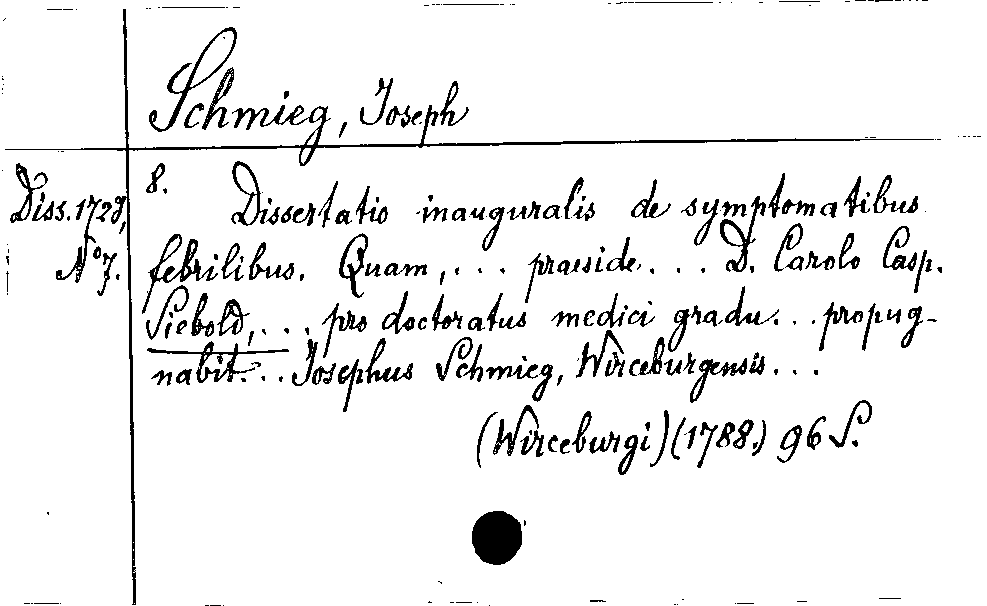 Schmieg, Joseph
Diss. 1729,
N° 7.
8. Dissertatio inauguralis de symptomatibus
febrilibus. Quam, ... praeside ... D. Carolo Casp.
Siebold, ... pro doctoratus medici gradu ... propug-
nabit ... Josephus Schmieg, Wirceburgensis ...
(Wirceburgi) (1788.) 96 S.